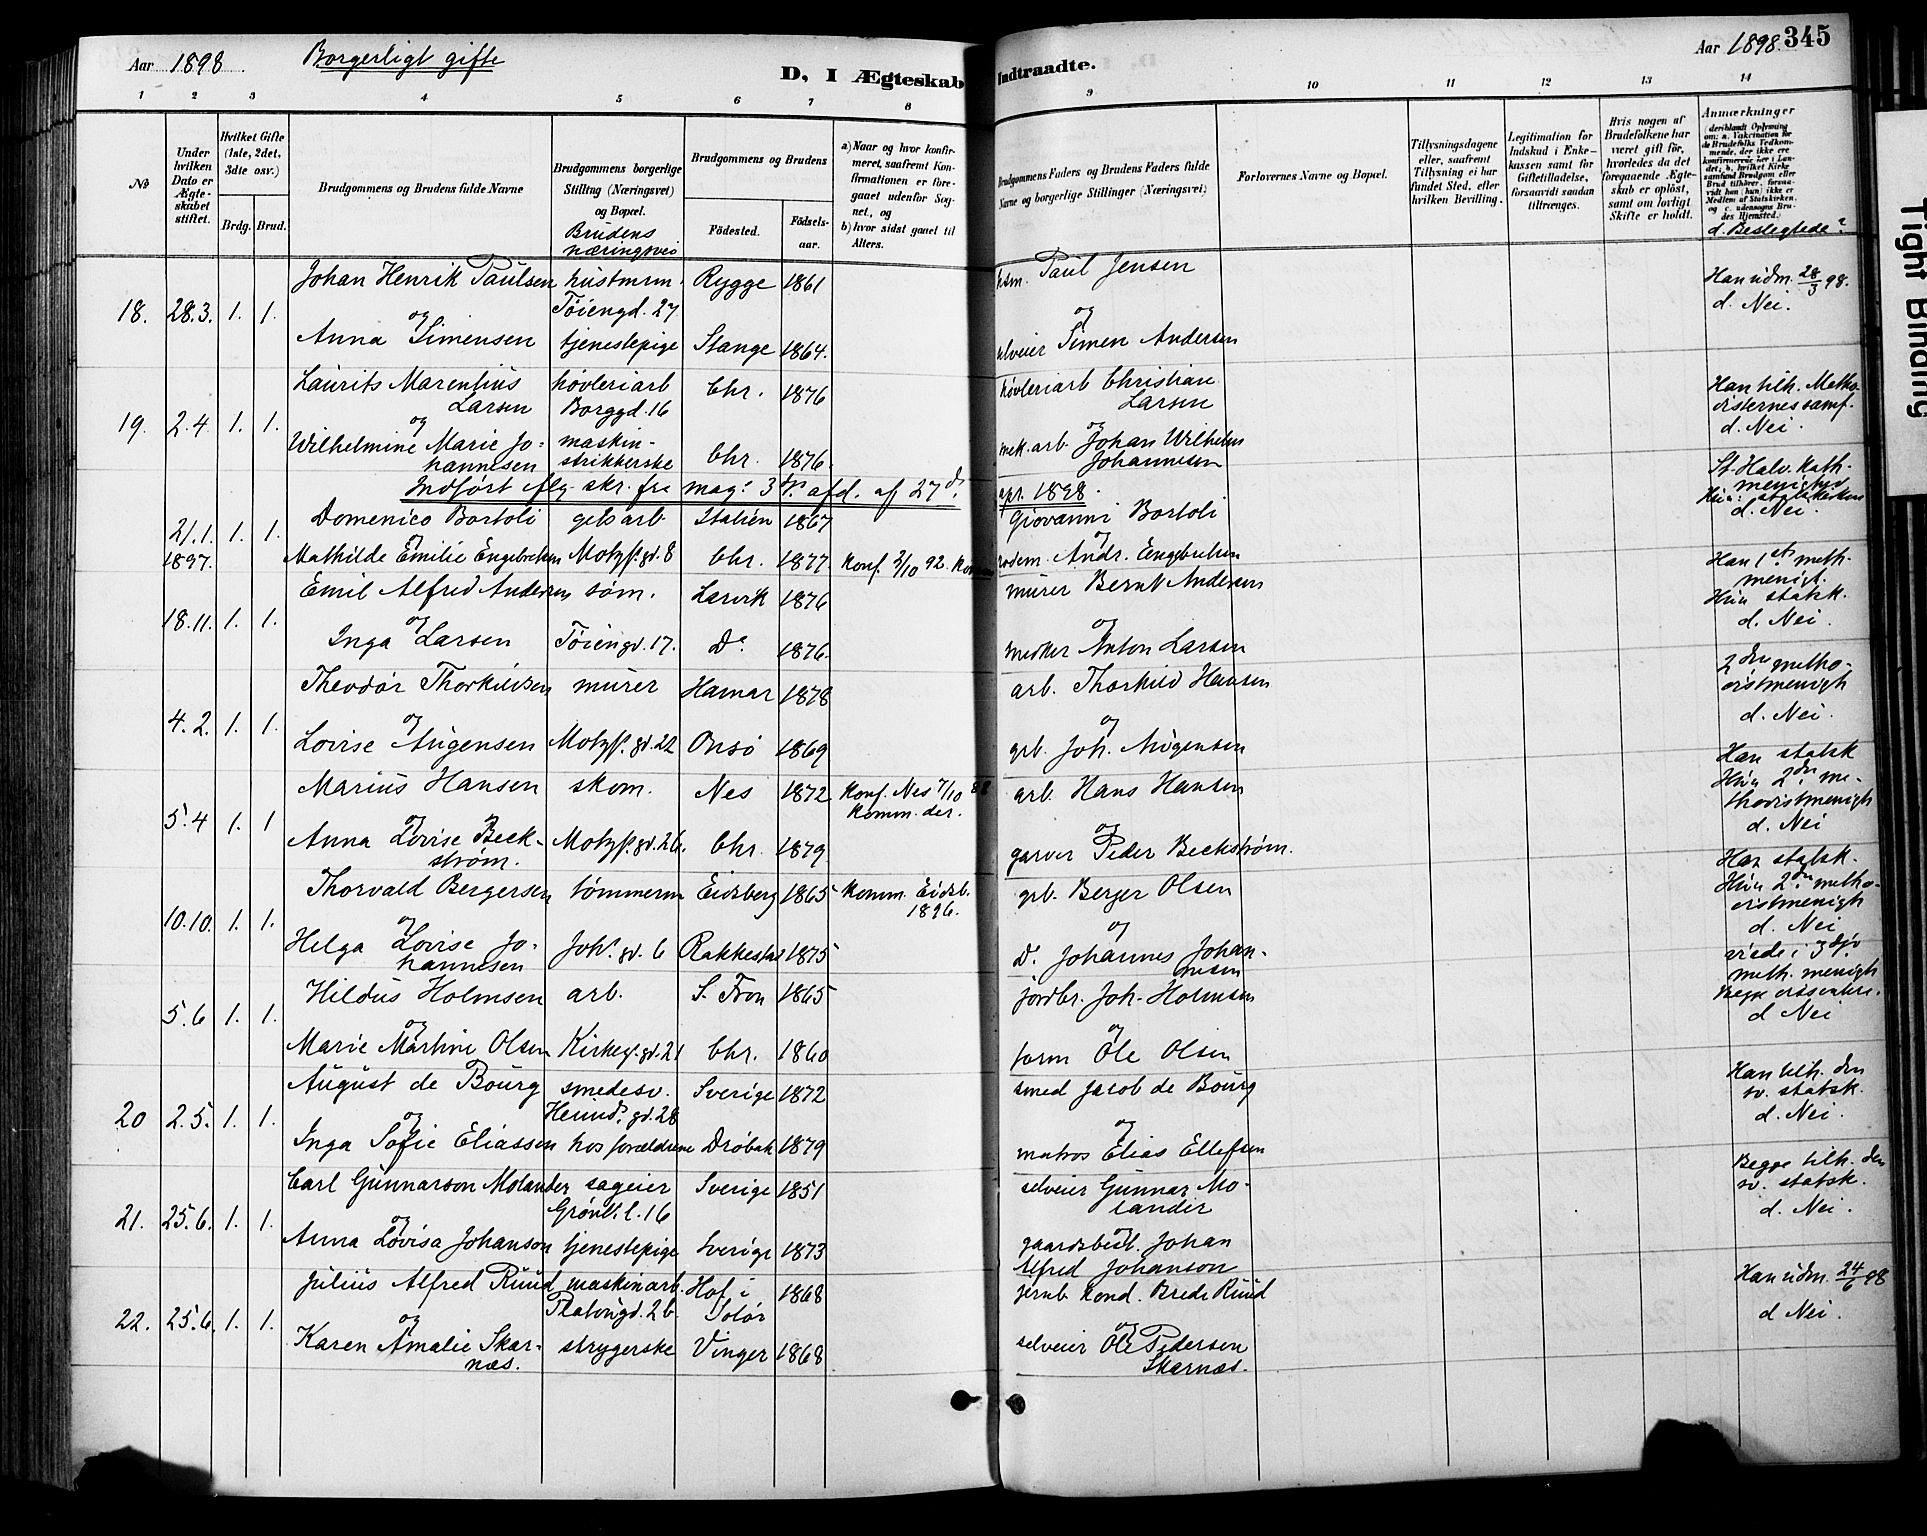 Aar 1898. Borgerligt gifte
D, I Ægteskab Indtraadte.
Aar 1898. 345
1 2 3 4 5 6 7 8 9 10 11 12 13 14
No
Under hvilken Dato er Ægteskabet stiftet.
Hvilket Gifte (1ste, 2det, 3die osv.)
Brdg. Brud.
Brudgommens og Brudens fulde Navne
Brudgommens borgerlige Stilling (Næringsvei) og Bopæl.
Brudens næringsvei
Brudgommens og Brudens
Födested. Födselsaar.
a) Naar og hvor konfirmeret, saafremt Konfirmationen er foregaaet udenfor Sognet, og
b) hvor sidst gaaet til Alters.
Brudgommens Faders og Brudens Faders fulde Navne og borgerlige Stillinger (Næringsvei)
Forlovernes Navne og Bopæl.
Tillysningsdagene eller, saafremt Tillysning ei har fundet Sted, efter hvilken Bevilling.
Legitimation for Indskud i Enkekassen samt for Giftetilladelse, forsaavidt saadan tiltrænges.
Hvis nogen af Brudefolkene har været gift för, hvorledes da det foregaaende Ægteskab er oplöst, samt om lovligt Skifte er holdt.
Anmærkninger (deriblandt Oplysning om: a. Vakcination för de Brudefolks Vedkommende, der ikke ere konfirmerede her i Landet; b. hvilket Kirkesamfund Brudgom eller Brud tilhörer, forsaavidt han (hun) ikke er Medlem af Statskirken. og c. udensogns Brudes Hjemsted.
d. Beslegtede?
Johan Henrik Paulsen hustmrm. Rygge 1861 hsm. Paul Jensen Han udm. 28/3 98.
18. 28.3. 1. 1. og Töiengd. 27 og d. Nei.
Anna Simensen tjenestepige Stange 1864. selveier Simen Andersen
Laurits Marentius Larsen høvleriarb Borggd. 16 Chr. 1876 høvleriarb Christian Larsen Han tilh. Methodisternes samf.
19. 2.4 1. 1. og og d. Nei.
Wilhelmine Marie Johannesen maskinstrikkerske Chr. 1876. mek. arb. Johan Wilhelm Johannesen
Indført flg. skr. fra mag. 3. afd. af 27d. apr. 1898.
St. Halv. kath. menighed
Hun: statskirken
d. Nei.
Domenico Bortoli gibsarb Italien 1867 Giovanni Bortoli
21/1. 1897. 1. 1. og og
Mathilde Emilie Engebretsen Motzf. gd. 8 Chr. 1877. konf. 2/10 92. Andr. Engebretsen
Emil Alfred Andersen søm. Larvik 1876 murer Bernt Andersen Han 1ste meth. menigt.
Hun statsk.
18.11. 1. 1. og og d. Nei.
Inga Larsen Töiengd. 17. Do 1876. Anton Larsen
Theodor Thorkildsen murer Hamar 1878 arb. Thorkild Hansen 2den methodistmenigh
4.2. 1. 1. og og d. Nei.
Lovise Augensen Motzf. gd. 22 Onsö 1869 grb. Joh. Augensen
Marius Hansen skom. Nes 1872 konf. Nes 7/10 88 komm. der. arb. Hans Hansen Han statsk
Hun 2den methodistmenigh
5.4 1. 1 og og d. Nei
Anna Lovise Beckstrøm. Motzf. gd. 26. Chr. 1879. garver Peder Beckstrøm.
Thorvald Bergersen tömmerm Eidsberg 1865 komm. Eidsb. 1896. grb. Berger Olsen Han statsk.
Hun 2den methodistmenigh
10.10. 1. 1. og og d. Nei
Helga Lovise Johannesen Johs. gd. 6 Rakkestad 1875 Do. Johannes Johannesen
Hildus Holmsen arb. S. Fron 1865 jordbr. Joh. Holmsen viede i 3dje meth. menigh
Begge dissentere.
5.6 1. 1. og og d Nei
Marie Martine Olsen Kirkeg. gd. 21 Chr. 1860 form Ole Olsen
August de Bourg smedesv. Sverige 1872 smed Jacob de Bourg Han tilh. den sv. statsk.
20 2.5. 1. 1. og Heimd. gd. 28 og d. Nei.
Inga Sofie Eliassen hos forældrene Dröbak 1879 matros Elias Ellefsen
Carl Gunnarson Molander sageier Sverige 1851 selveier Gunnar Molander Begge tilh. den sv. statsk.
21. 25.6. 1. 1. og Grönl. l. 16 og d. Nei.
Anna Lovisa Johanson tjenestepige Sverige 1873 gaardsbest. Johan Alfred Johanson
Julius Alfred Ruud maskinarb. Hof i Solör 1868 jernb. kond. Brede Ruud Han udm. 24/6 98
22. 25.6. 1. 1. og gd. 2b og d Nei.
Karen Amalie Skarnæs. strygerske Vinger 1868 selveier Ole Pedersen Skarnæs.
Tight Binding